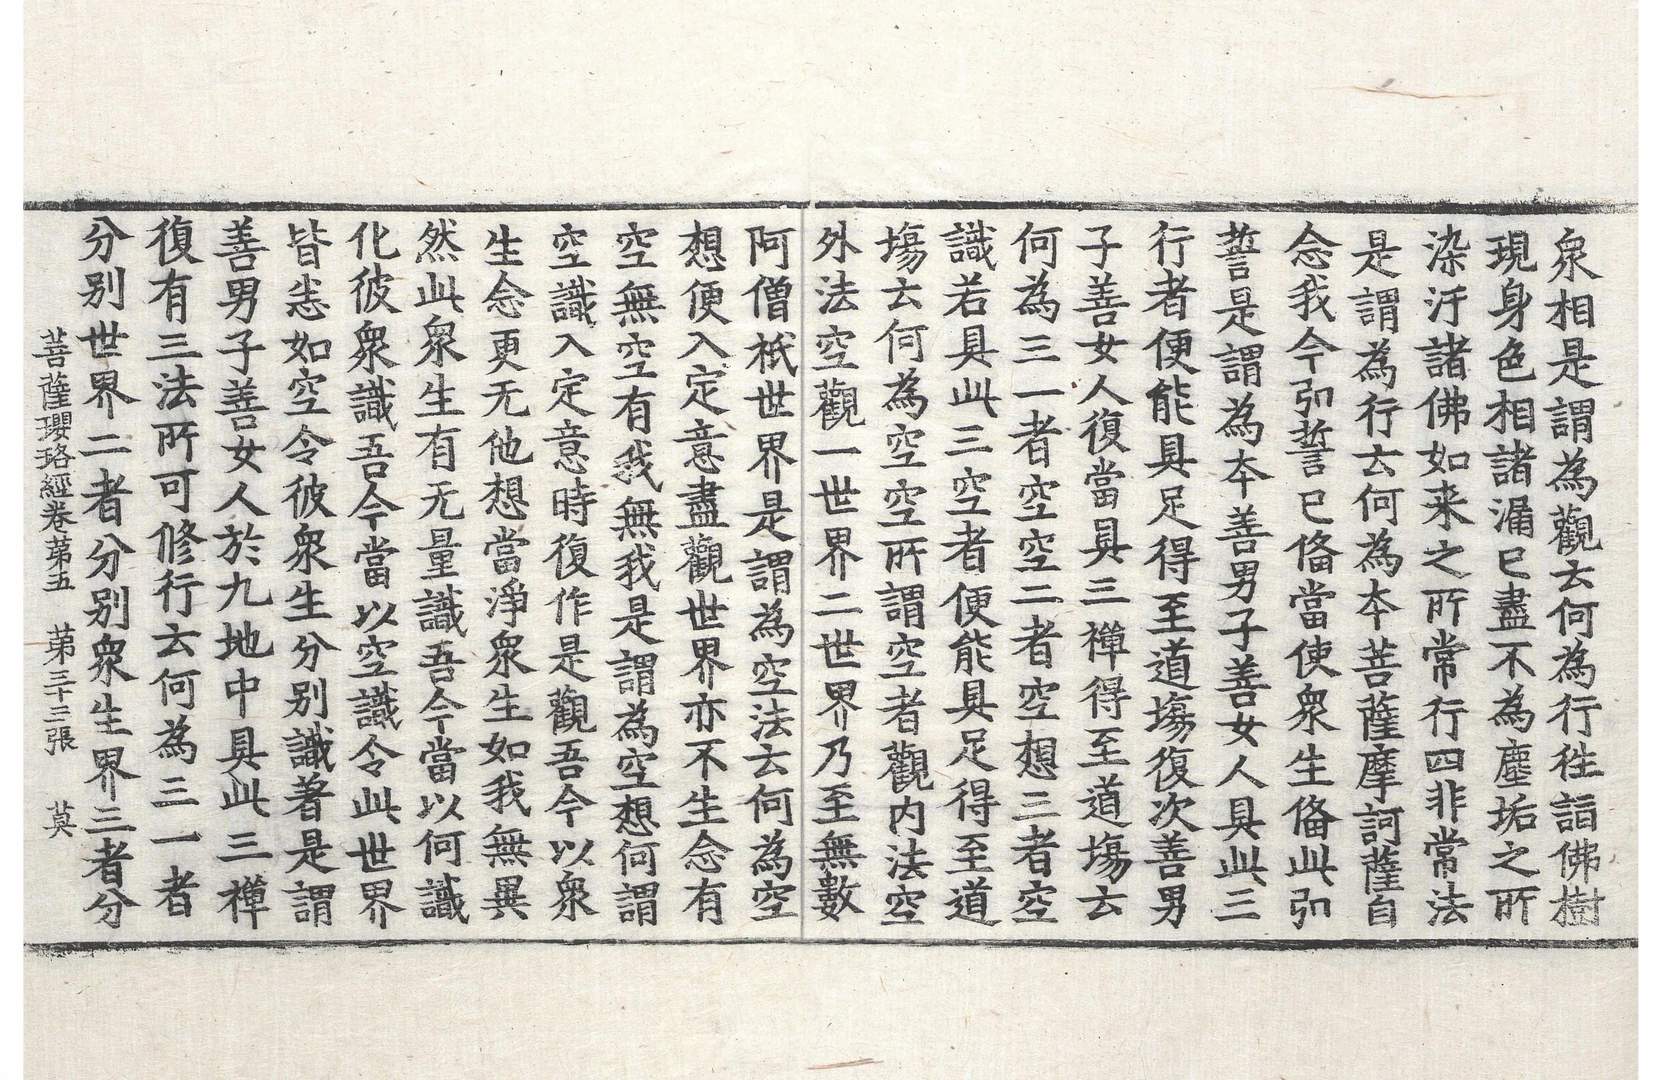 衆相是謂為觀云何為行往詣佛樹
現身色相諸漏已盡不為塵垢之所
染汙諸佛如来之所常行四非常法
是謂為行云何為本菩薩摩訶薩自
念我今弘誓已俻當使衆生俻此弘
誓是謂為本善男子善女人具此三
行者便能具足得至道場復次善男
子善女人復當具三禪得至道場云
何為三一者空空二者空想三者空
識若具此三空者便能具足得至道
場云何為空空所謂空者觀内法空
外法空觀一世界二世界乃至無數
阿僧祇世界是謂為空法云何為空
想便入定意盡觀世界亦不生念有
空無空有我無我是謂為空想何謂
空識入定意時復作是觀吾今以衆
生念更无他想當淨衆生如我無異
然此衆生有无量識吾今當以何識
化彼衆識吾今當以空識令此世界
皆悉如空令彼衆生分别識著是謂
善男子善女人於九地中具此三禪
復有三法所可修行云何為三一者
分别世界二者分别衆生界三者分
菩薩瓔珞經卷苐五　苐三十三張　莫